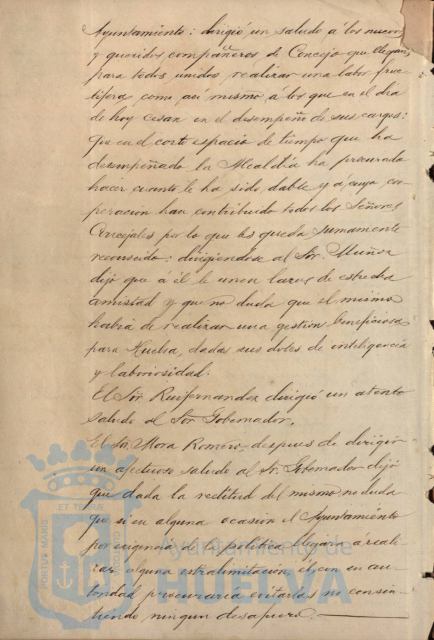 Ayuntamiento: dirigió un saludo á los nuevos
y queridos compañeros de Concejo que llegan
para todos unidos realizar una labor fruc
tífera como así mismo á los que en el dia
de hoy cesan en el desempeño de sus cargos:
Que en el corto espacio de tiempo que ha
desempeñado la Alcaldía ha procurado
hacer cuanto le ha sido dable y á cuya coo
peración han contribuido todos los Señores
Concejales por lo que les queda sumamente
reconocido: dirigiendose al Sor. Muñoz
dijo que á él le unen lazos de estrecha
amistad y que no duda que el mismo
habrá de realizar una gestión beneficiosa
para Huelva, dadas sus dotes de inteligencia
y laboriosidad.
El Sor Ruifernandez dirigió un atento
saludo al Sor Gobernador.
El Sr. Mora Romero despues de dirigir
un afectuoso saludo al Sr. Gobernador dijo
que dada la rectitud del mismo no duda
que si en alguna ocasion el Ayuntamiento
por exigencia de la política llegara á reali
zar alguna extralimitación, él con su au
toridad procuraria evitarlas no consin
tiendo ningun desafuero.
ET TERRÆ
PORTUS MARIS
CUSTODIO
Ayuntamiento de
HUELVA